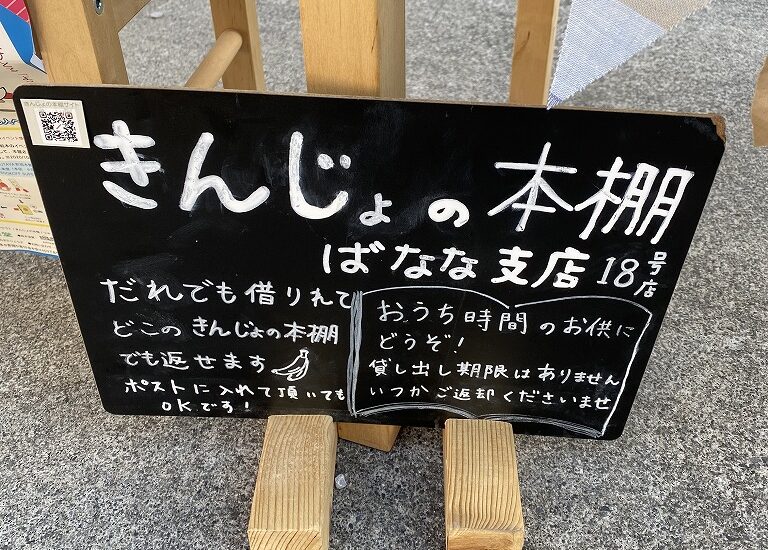 きんじょの本棚サイト
きんじょの本棚
ばなな支店18号店
だれでも借りれて
どこのきんじょの本棚
でも返せます
ポストに入れて頂いても
OKです!
おうち時間のお供に
どうぞ!
貸し出し期限はありません
いつかご返却くださいませ